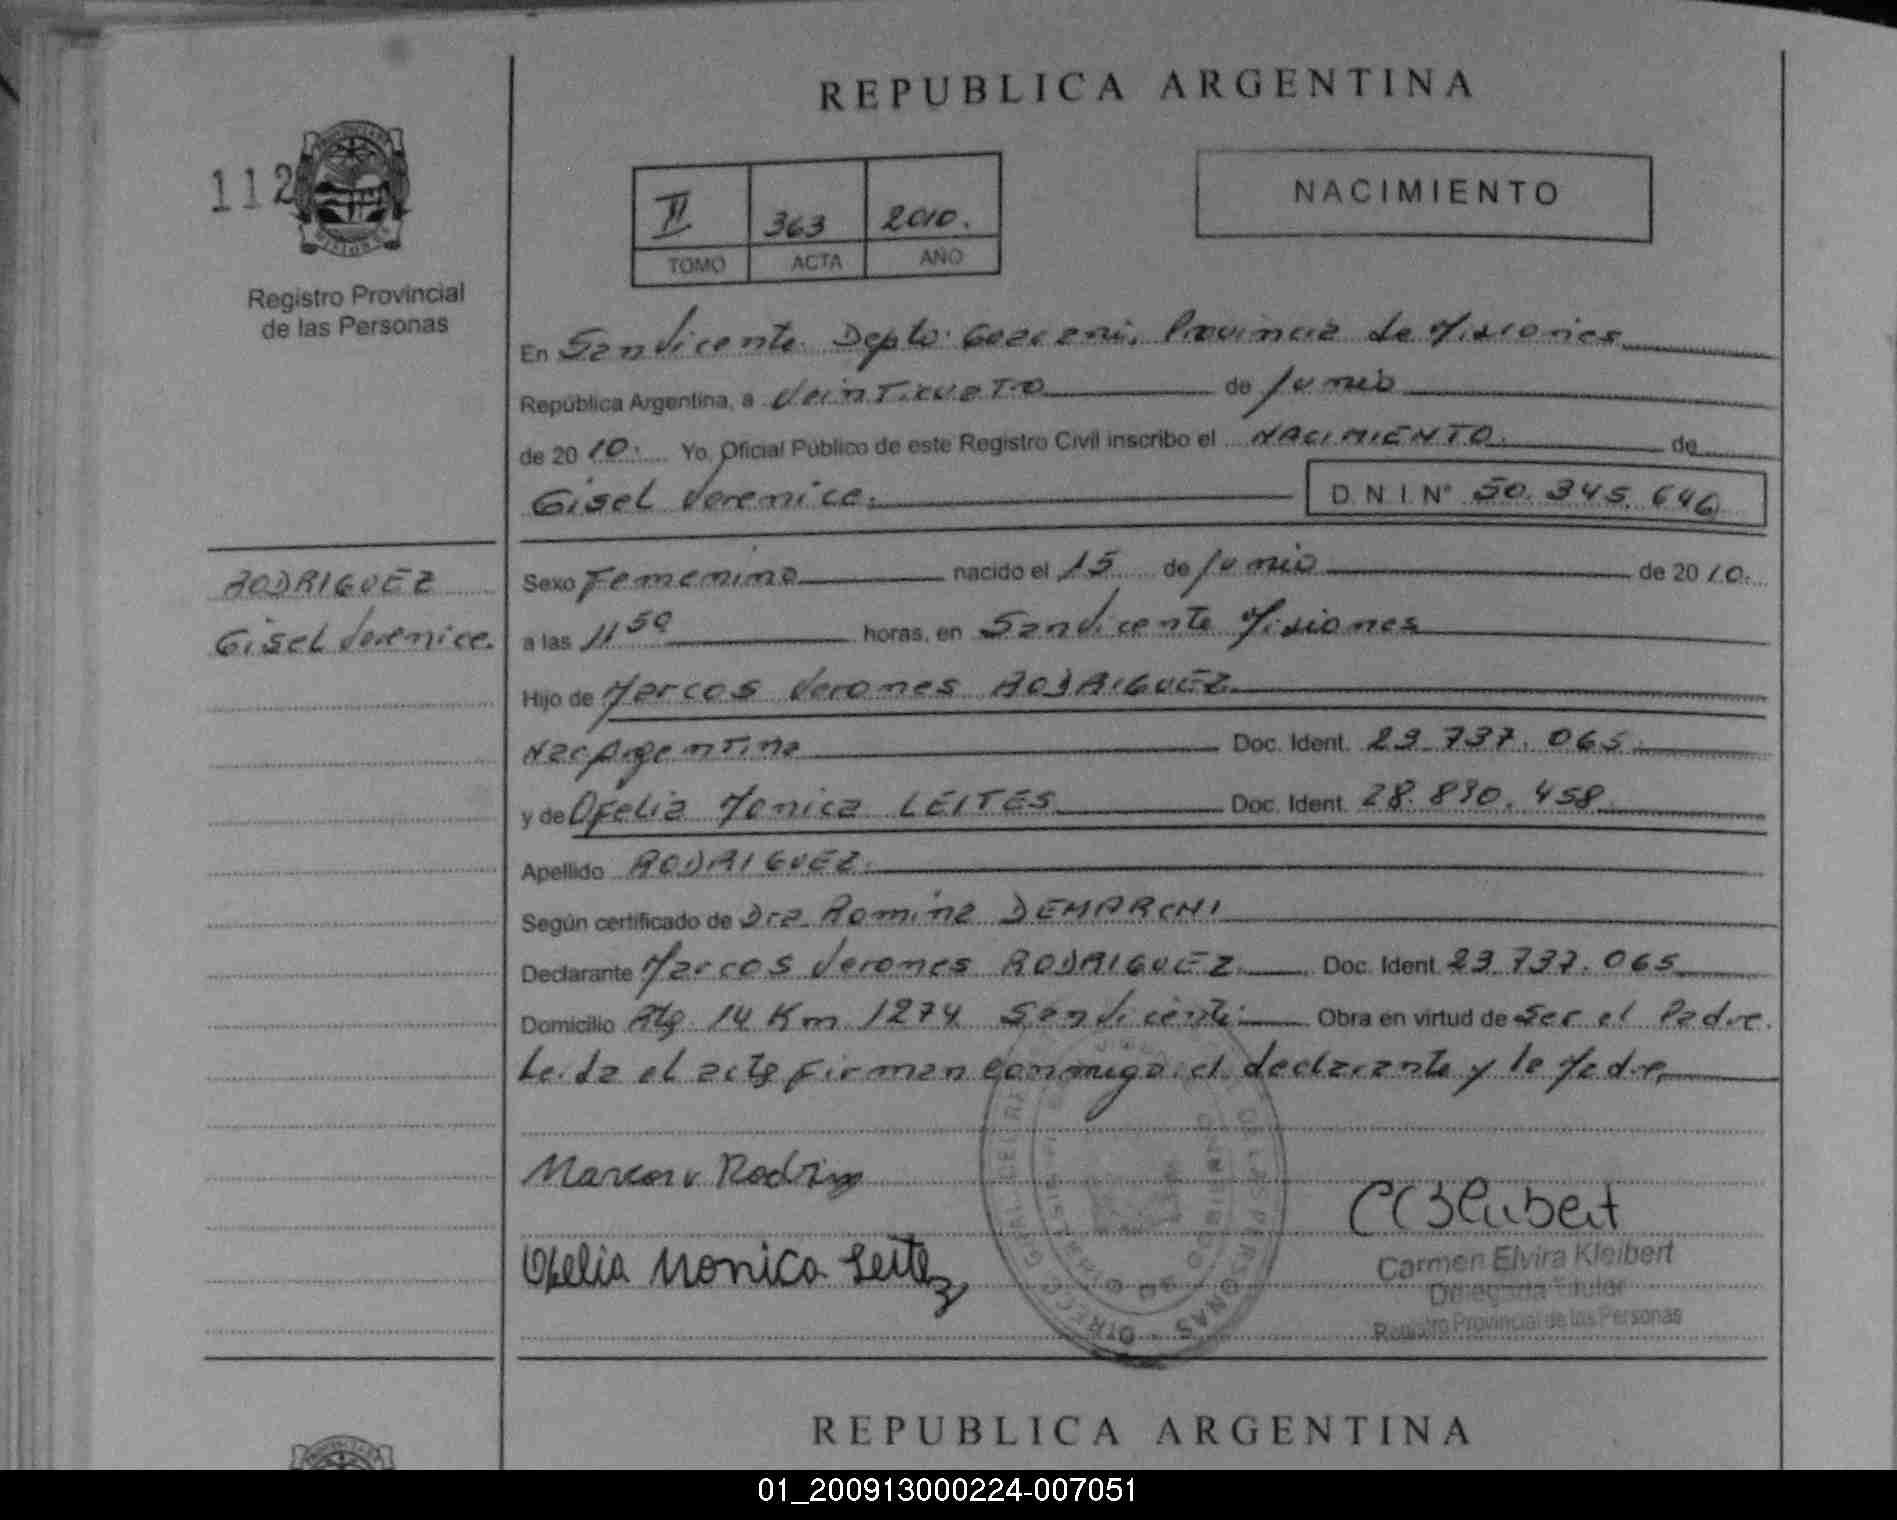 REPUBLICA ARGENTINA
112
II 363 2010.
TOMO ACTA AÑO
NACIMIENTO
Registro Provincial
de las Personas
En San Vicente Depto. Guarani, Provincia de Misiones
República Argentina, a Veinticuatro de Junio
de 20 10. Yo, Oficial Público de este Registro Civil inscribo el NACIMIENTO. de
Gisel Verenice. D.N.I.N° 50.345.646
RODRIGUEZ
Gisel Verenice.
Sexo Femenino nacido el 15 de Junio de 20 10.
a las 11 50 horas, en San Vicente Misiones
Hijo de Marcos Verones RODRIGUEZ
Nac Argentina Doc. Ident. 23.737.065
y de Ofelia Monica LEITES Doc. Ident. 28.830.458
Apellido RODRIGUEZ.
Según certificado de Dra. Romina DEMARCHI
Declarante Marcos Verones RODRIGUEZ Doc. Ident. 23.737.065
Domicilio Ruta 14 Km 1274 San Vicente Obra en virtud de Ser el Padre.
Leida el acta firman conmigo el declarante y la Madre
Ofelia Monica Leites
Carmen Elvira Kleibert
Delegada Titular
Registro Provincial de las Personas
REPUBLICA ARGENTINA
01_200913000224-007051